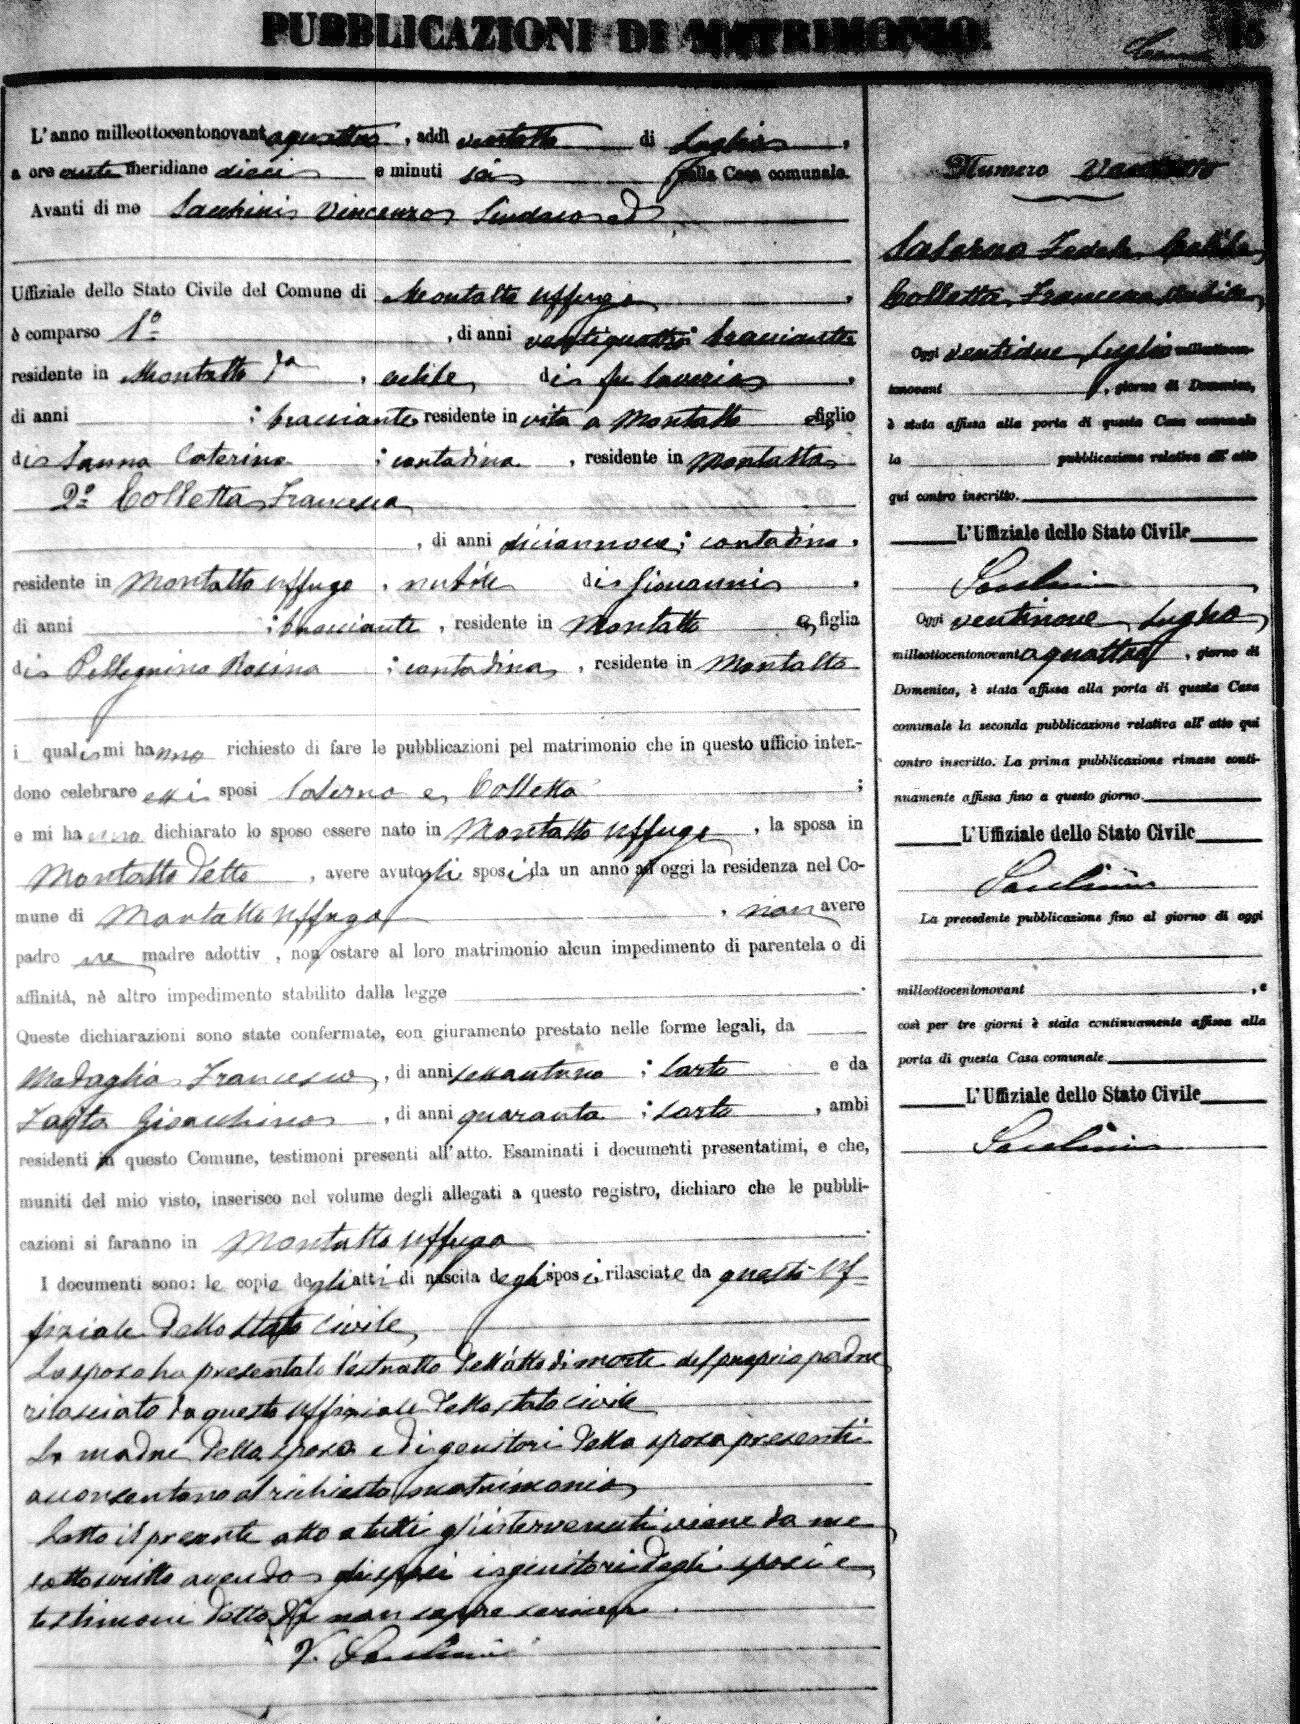 PUBBLICAZIONI DI MATRIMONIO.
L'anno milleottocentonovantaquattro, addì ventotto di Luglio,
a ore ante meridiane dieci e minuti sei nella Casa comunale.
Avanti di me Sacchini Vincenzo Sindaco ed
Uffiziale dello Stato Civile del Comune di Montalto Uffugo,
è comparso 1º , di anni ventiquattro; bracciante
residente in Montalto , celibe di fu Saverio,
di anni ; bracciante residente in vita a Montalto e figlio
di Sanna Caterina ; contadina, residente in Montalto
2º Colletta Francesca
, di anni diciannove; contadina,
residente in Montalto Uffugo, nubile di Giovanni,
di anni ; bracciante, residente in Montalto e figlia
di Pellegrino Rosina ; contadina, residente in Montalto
i quali mi hanno richiesto di fare le pubblicazioni pel matrimonio che in questo ufficio inten-
dono celebrare essi sposi Salerno e Colletta ;
e mi hanno dichiarato lo sposo essere nato in Montalto Uffugo, la sposa in
Montalto detto , avere avuto gli sposi da un anno ad oggi la residenza nel Co-
mune di Montalto Uffugo , non avere
padre ne madre adottiv , non ostare al loro matrimonio alcun impedimento di parentela o di
affinità, nè altro impedimento stabilito dalla legge .
Queste dichiarazioni sono state confermate, con giuramento prestato nelle forme legali, da
Madaglia Francesco, di anni sessantuno ; sarto e da
Gioacchino , di anni quaranta ; sarto , ambi
residenti in questo Comune, testimoni presenti all'atto. Esaminati i documenti presentatimi, e che,
muniti del mio visto, inserisco nel volume degli allegati a questo registro, dichiaro che le pubbli-
cazioni si faranno in Montalto Uffugo .
I documenti sono: le copie degli atti di nascita degli sposi, rilasciate da questo Uf-
fiziale dello stato civile
Lo sposo ha presentato l'estratto dell'atto di morte del proprio padre
rilasciato da questo Uffiziale dello stato civile
La madre dello sposo e di genitori della sposa presenti
acconsentono al richiesto matrimonio
Letto il presente atto a tutti gl'intervenuti viene da me
sottoscritto avendo gli sposi i genitori degli sposi e
testimoni detto di non sapere scrivere.
V. Sacchini
Numero
Salerno Fedele Celibe
Colletta Francesca Nubile
Oggi ventidue Luglio milleottocen-
tonovant , giorno di Domenica,
è stata affissa alla porta di questa Casa comunale
la pubblicazione relativa all'atto
qui contro inscritto.
L'Uffiziale dello Stato Civile
Sacchini
Oggi ventinove Luglio
milleottocentonovantaquattro, giorno di
Domenica, è stata affissa alla porta di questa Casa
comunale la seconda pubblicazione relativa all'atto qui
contro inscritto. La prima pubblicazione rimase conti-
nuamente affissa fino a questo giorno.
L'Uffiziale dello Stato Civile
Sacchini
La precedente pubblicazione fino al giorno di oggi
milleottocentonovant , e
così per tre giorni è stata continuamente affissa alla
porta di questa Casa comunale.
L'Uffiziale dello Stato Civile
Sacchini